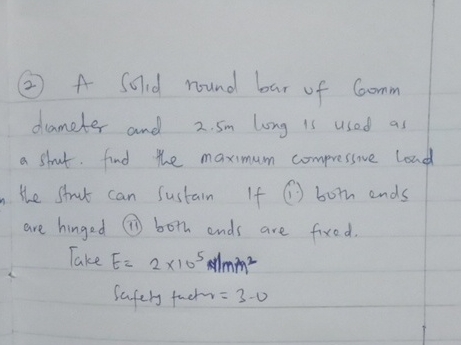 ② A Solid round bar of 60mm
diameter and 2.5m long is used as
a strut. find the maximum compressive load
the strut can sustain if (i) both ends
are hinged (ii) both ends are fixed.
Take E = 2 x 10⁵ N/mm²
Safety factor = 3.0